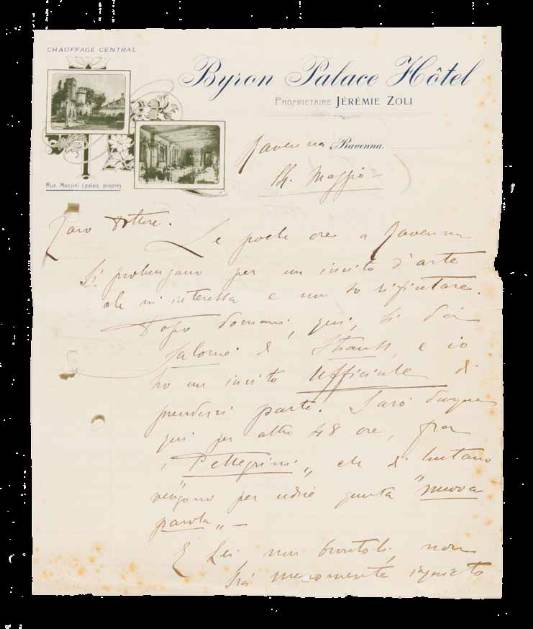 CHAUFFAGE CENTRAL
Byron Palace Hôtel
PROPRIETAIRE JÉRÉMIE ZOLI
Ravenna Ravenna.
Maggio
Caro Ettore.
Le poche ore a Ravenna
si prolungano per un invito d'arte
che mi interessa e non so rifiutare.
Dopo domani, qui, si dà
Salomè di Strauss, e io
ho un invito Ufficiale di
prendervi parte. Sarò dunque
qui per altre 48 ore, fra
i "Pellegrini" che di lontano
vengono per udire questa "nuova
parola" –
E Lei non brontoli, non
sia inquieto